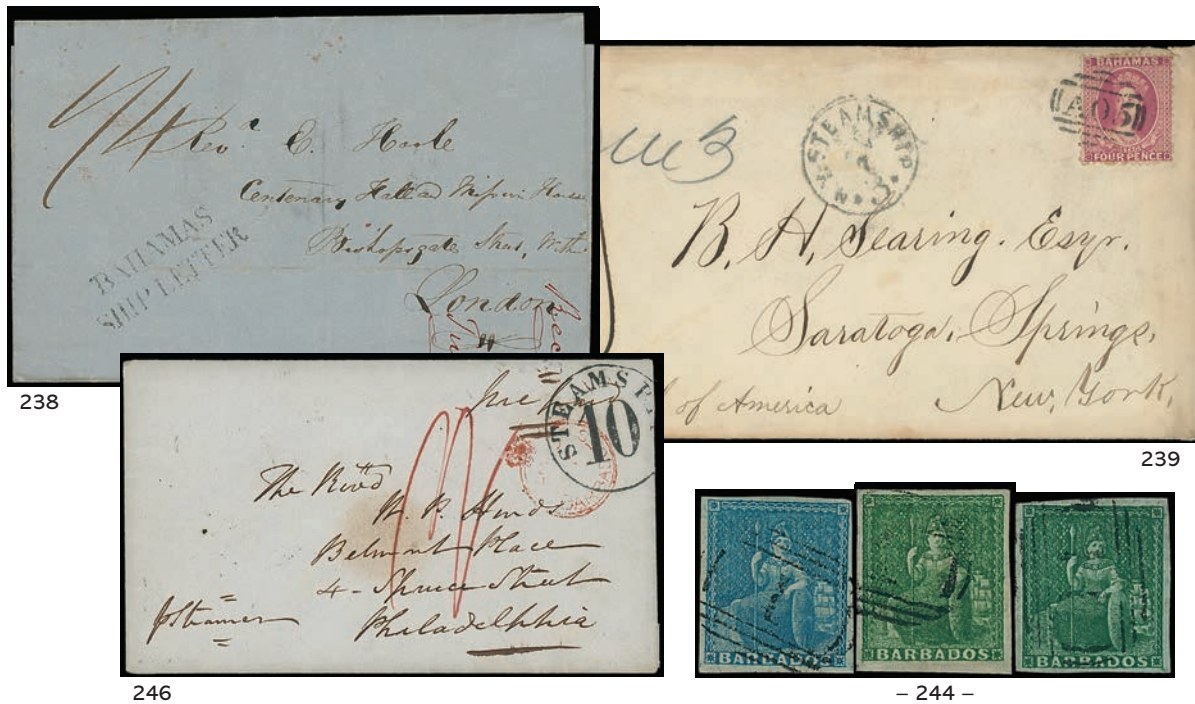 Revd. E. Hoole
Centenary Hall and Mission House
Bishopsgate Street, With
London
BAHAMAS
SHIP LETTER
238
BAHAMAS
FOUR PENCE
A05
N.Y. STEAMSHIP
B. H. Searing. Esqr.
Saratoga, Springs,
New, York,
of America
239
STEAMSHIP
10
The Revd
Belmont Place
4 - Spruce Street
Philadelphia
p Steamer
246
BARBADOS
BARBADOS
BARBADOS
– 244 –